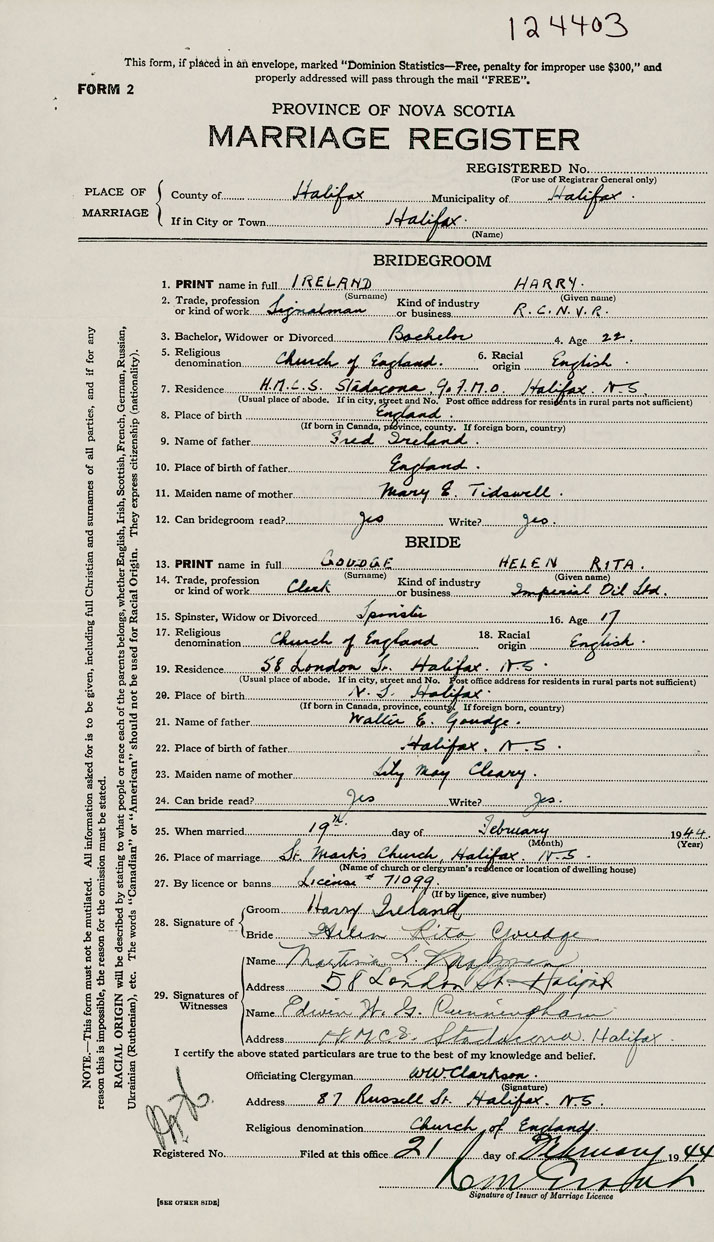 124403
This form, if placed in an envelope, marked "Dominion Statistics—Free, penalty for improper use $300," and
properly addressed will pass through the mail "FREE".
FORM 2
PROVINCE OF NOVA SCOTIA
MARRIAGE REGISTER
REGISTERED No.
(For use of Registrar General only)
PLACE OF MARRIAGE
County of Halifax Municipality of Halifax.
If in City or Town Halifax.
(Name)
BRIDEGROOM
1. PRINT name in full IRELAND HARRY.
(Surname) (Given name)
2. Trade, profession or kind of work Signalman Kind of industry or business R.C.N.V.R.
3. Bachelor, Widower or Divorced Bachelor 4. Age 22.
5. Religious denomination Church of England. 6. Racial origin English.
7. Residence H.M.C.S. Stadacona, F.M.O. Halifax. N.S.
(Usual place of abode. If in city, street and No. Post office address for residents in rural parts not sufficient)
8. Place of birth England.
(If born in Canada, province, county. If foreign born, country)
9. Name of father Fred Ireland.
10. Place of birth of father England.
11. Maiden name of mother Mary E. Tidswell.
12. Can bridegroom read? Yes Write? Yes.
BRIDE
13. PRINT name in full GOUDGE HELEN RITA.
(Surname) (Given name)
14. Trade, profession or kind of work Clerk Kind of industry or business Imperial Oil Ltd.
15. Spinster, Widow or Divorced Spinster 16. Age 17
17. Religious denomination Church of England 18. Racial origin English.
19. Residence 58 London St. Halifax. N.S.
(Usual place of abode. If in city, street and No. Post office address for residents in rural parts not sufficient)
20. Place of birth N.S. Halifax.
(If born in Canada, province, county. If foreign born, country)
21. Name of father Walter E. Goudge.
22. Place of birth of father Halifax, N.S.
23. Maiden name of mother Lily May Cleary.
24. Can bride read? Yes Write? Yes.
25. When married 19th day of February 1944.
(Month) (Year)
26. Place of marriage St. Mark's Church, Halifax. N.S.
(Name of church or clergyman's residence or location of dwelling house)
27. By licence or banns License # 71099.
(If by licence, give number)
28. Signature of
Groom Harry Ireland
Bride Helen Rita Goudge
29. Signatures of Witnesses
Name Martina L.
Address 58 London St. Halifax
Name Edwin W. G. Cunningham
Address H.M.C.S. Stadacona. Halifax.
I certify the above stated particulars are true to the best of my knowledge and belief.
Officiating Clergyman WW Clarkson.
(Signature)
Address 87 Russell St. Halifax. N.S.
Religious denomination Church of England.
Registered No. Filed at this office 21 day of February 1944
Signature of Issuer of Marriage Licence
[SEE OTHER SIDE]
NOTE.—This form must not be mutilated. All information asked for is to be given, including full Christian and surnames of all parties, and if for any
reason this is impossible, the reason for the omission must be stated.
RACIAL ORIGIN will be described by stating to what people or race each of the parents belongs, whether English, Irish, Scottish, French, German, Russian,
Ukrainian (Ruthenian), etc. The words "Canadian" or "American" should not be used for Racial Origin. They express citizenship (nationality).